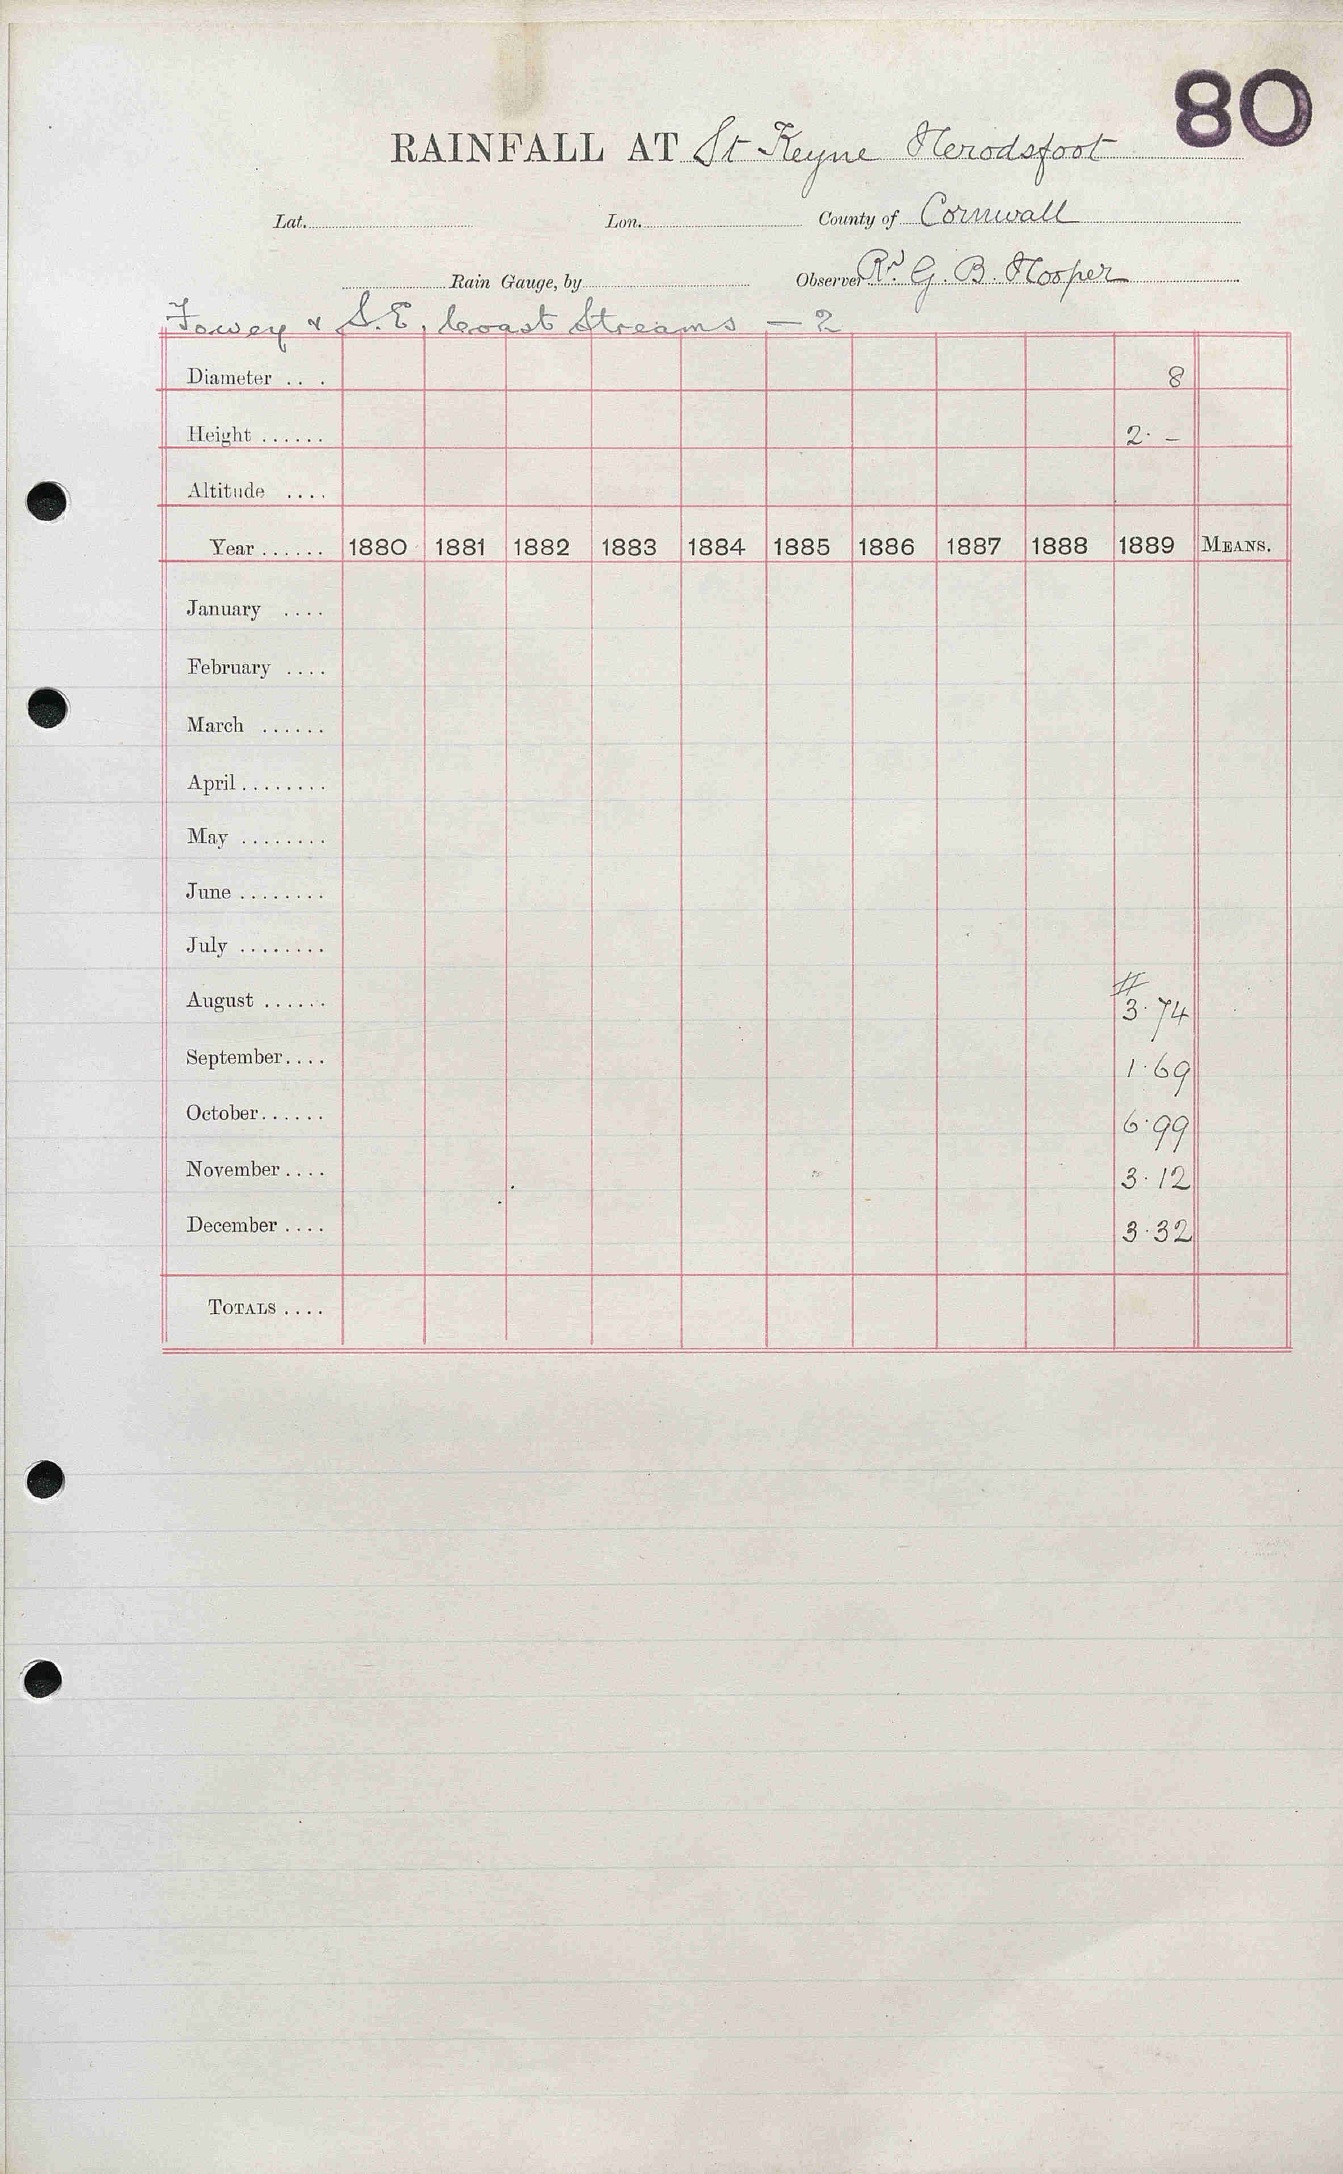 80
RAINFALL AT St Keyne Herodsfoot
Lat. Lon. County of Cornwall
Rain Gauge, by Observer Rd. G. B. Hooper
Fowey & S.E. Coast Streams — 2
Diameter .. . 8
Height ...... 2· –
Altitude ....
Year ...... 1880 1881 1882 1883 1884 1885 1886 1887 1888 1889 MEANS.
January ....
February ....
March ......
April ........
May ........
June ........
July ........
#
August ...... 3·74
September.... 1·69
October...... 6·99
November .... 3·12
December .... 3·32
TOTALS ....